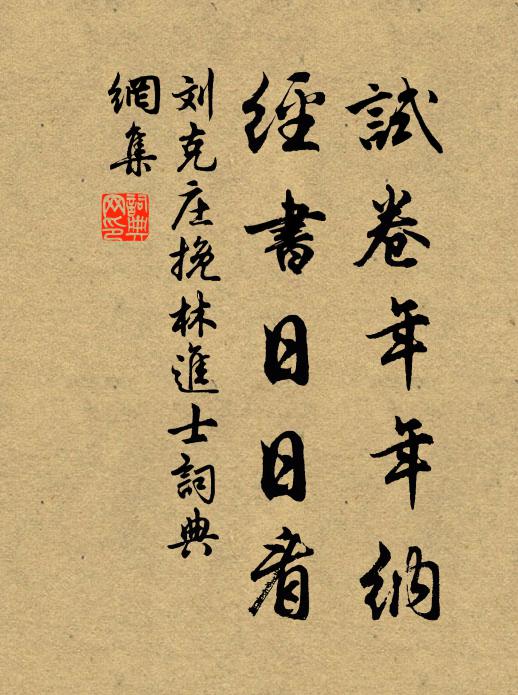 試卷年年納
經書日日看
刘克庄挽林進士詞典
網集
詞典
网印